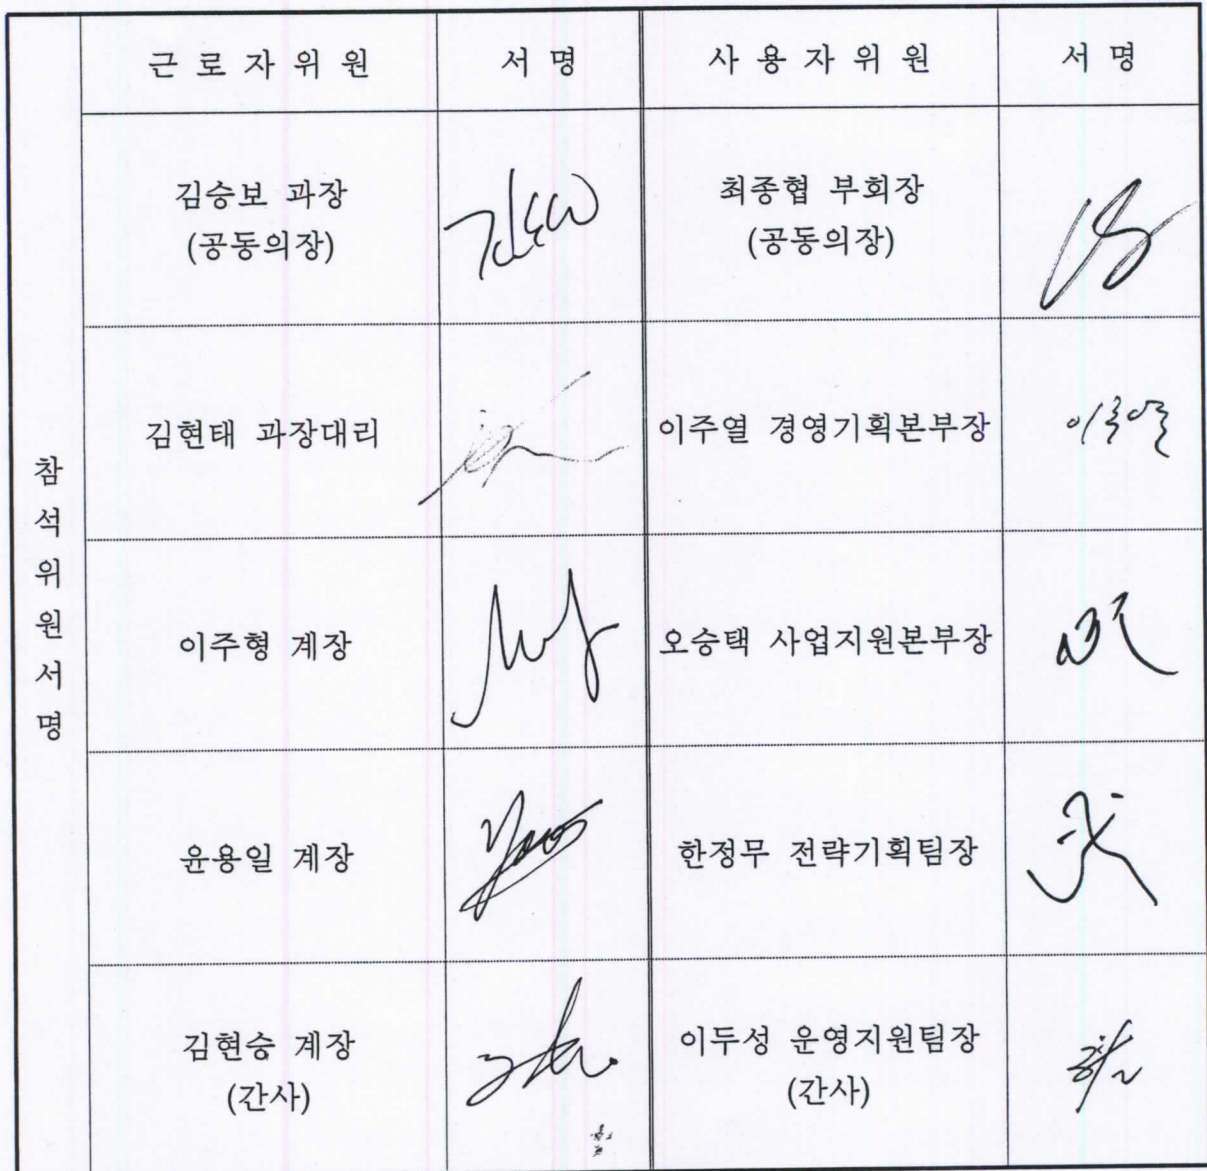 참석위원서명
근 로 자 위 원 서 명 사 용 자 위 원 서 명
김승보 과장
(공동의장)
최종협 부회장
(공동의장)
김현태 과장대리
이주열 경영기획본부장
이주열
이주형 계장
오승택 사업지원본부장
윤용일 계장
한정무 전략기획팀장
김현승 계장
(간사)
이두성 운영지원팀장
(간사)